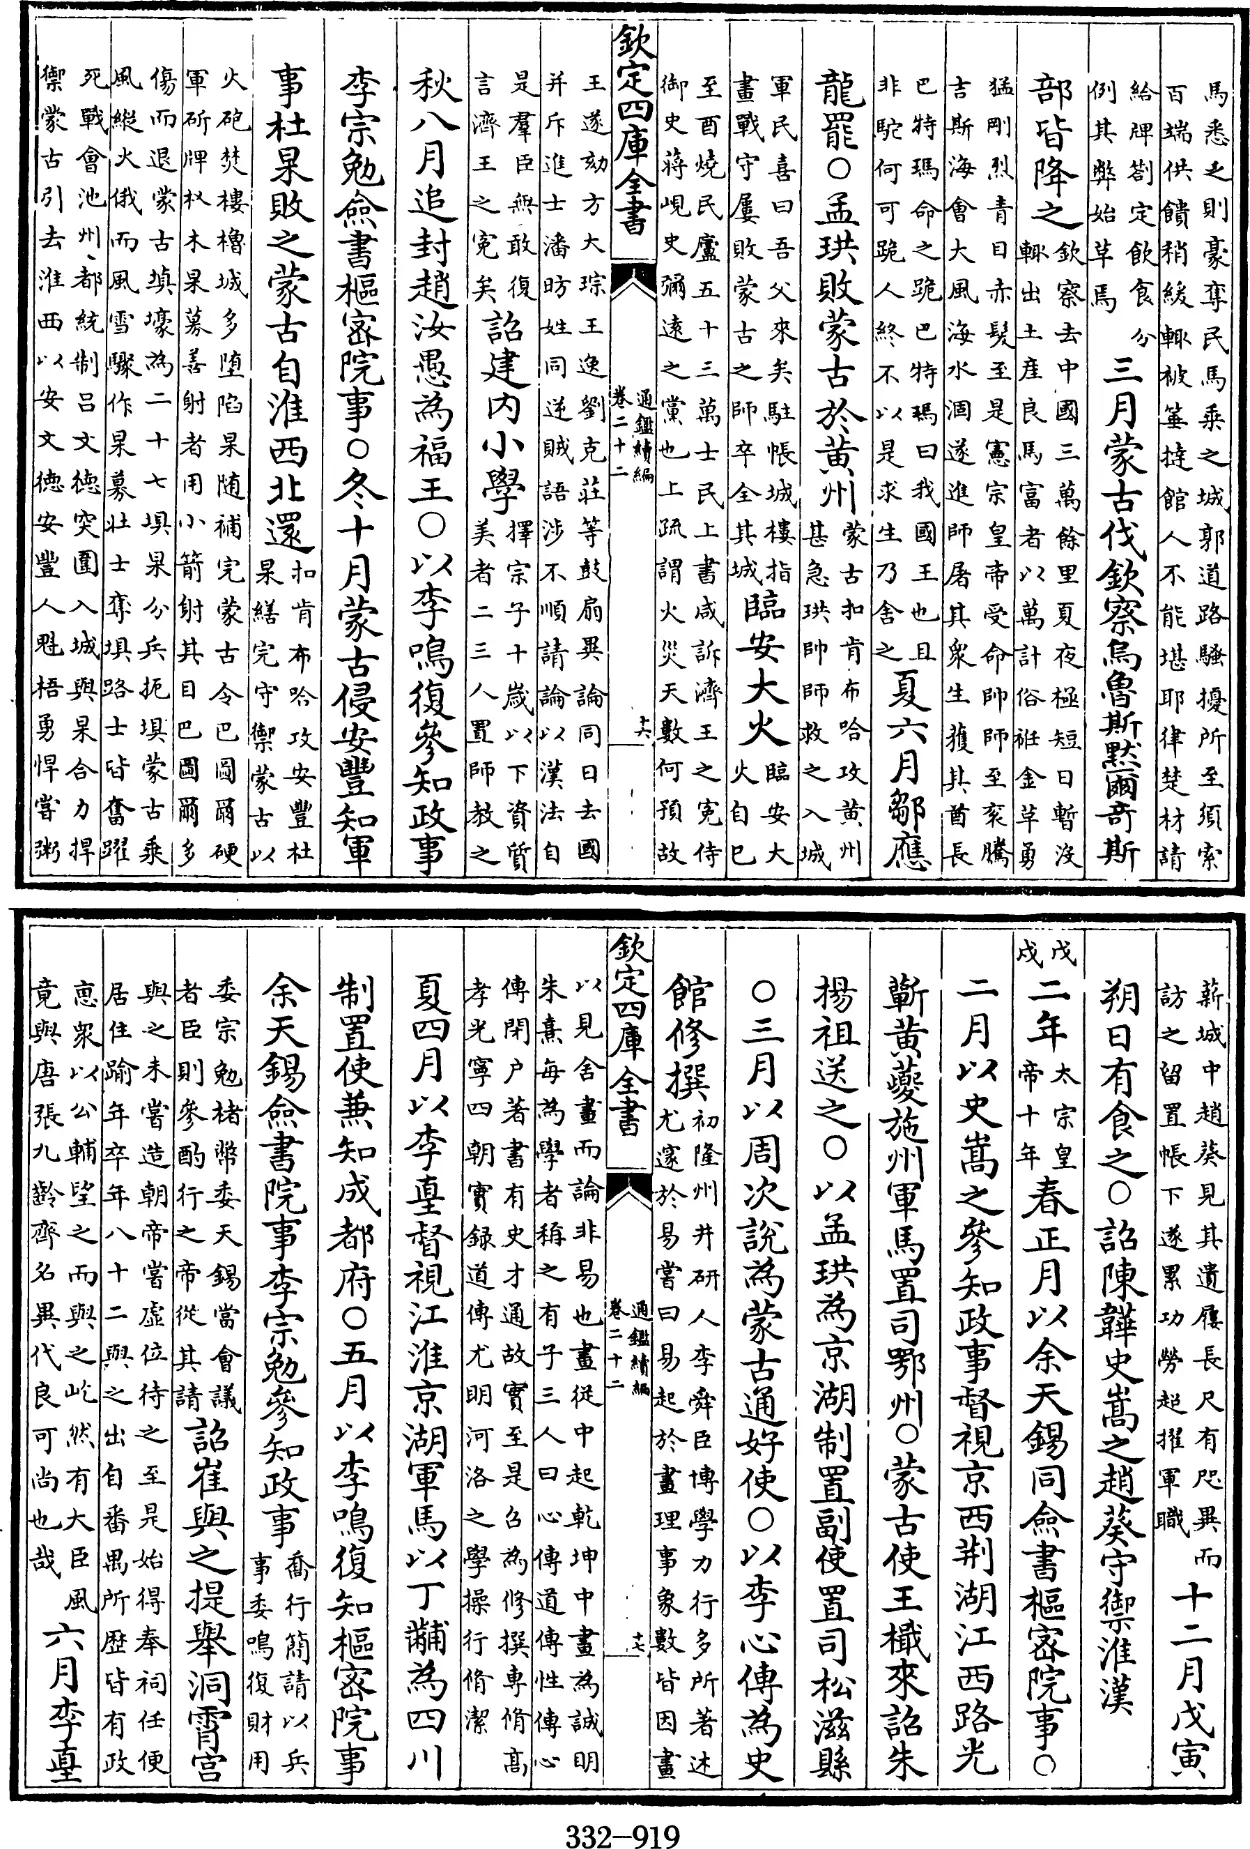 馬悉乏則豪奪民馬乘之城郭道路騷擾所至須索
百端供饋稍緩輒被箠撻館人不能堪耶律楚材請
給牌劄定飲食分
例其弊始革焉
三月蒙古伐欽察烏魯斯黙爾奇斯
部皆降之
欽察去中國三萬餘里夏夜極短日暫沒
輒出土産良馬富者以萬計俗衽金革勇
猛剛烈青目赤髮至是憲宗皇帝受命帥師至衮騰
吉斯海會大風海水涸遂進師屠其衆生獲其酋長
巴特瑪命之跪巴特瑪曰我國王也且
非駝何可跪人終不以是求生乃舍之
夏六月鄒應
龍罷○孟珙敗蒙古於黄州
蒙古扣肯布哈攻黄州
甚急珙帥師救之入城
軍民喜曰吾父來矣駐帳城樓指
畫戰守屢敗蒙古之師卒全其城
臨安大火
臨安大
火自巳
至酉燒民廬五十三萬士民上書咸訴濟王之寃侍
御史蔣峴史彌遠之黨也上疏謂火災天數何預故
欽定四庫全書
通鑑續編
卷二十二
十六
王遂劾方大琮王逸劉克莊等鼓扇異論同日去國
并斥進士潘昉姓同逆賊語涉不順請論以漢法自
是羣臣無敢復
言濟王之寃矣
詔建内小學
擇宗子十歲以下資質
美者二三人置師教之
秋八月追封趙汝愚為福王○以李鳴復參知政事
李宗勉僉書樞密院事○冬十月蒙古侵安豐知軍
事杜杲敗之蒙古自淮西北還
扣肯布哈攻安豐杜
杲繕完守禦蒙古以
火砲焚樓櫓城多墮陷杲随補完蒙古令巴圖爾硬
軍斫牌杈木杲募善射者用小箭射其目巴圖爾多
傷而退蒙古填壕為二十七垻杲分兵扼垻蒙古乘
風縱火俄而風雪驟作杲募壯士奪垻路士皆奮躍
死戰會池州都統制吕文德突圍入城與杲合力捍
禦蒙古引去淮西以安文德安豐人魁梧勇悍嘗鬻
薪城中趙葵見其遺屨長尺有咫異而
訪之留置帳下遂累功勞超擢軍職
十二月戊寅
朔日有食之○詔陳韡史嵩之趙葵守禦淮漢
戊
戌
二年
太宗皇
帝十年
春正月以余天錫同僉書樞密院事○
二月以史嵩之參知政事督視京西荆湖江西路光
蘄黄夔施州軍馬置司鄂州○蒙古使王檝來詔朱
揚祖送之○以孟珙為京湖制置副使置司松滋縣
○三月以周次說為蒙古通好使○以李心傳為史
館修撰
初隆州井研人李舜臣博學力行多所著述
尤邃於易嘗曰易起於畫理事象數皆因畫
欽定四庫全書
通鑑續編
卷二十二
十七
以見舍畫而論非易也畫從中起乾坤中畫為誠明
朱熹每為學者稱之有子三人曰心傳道傳性傳心
傳閉户著書有史才通故實至是召為修撰專脩髙
孝光寧四朝實録道傳尤明河洛之學操行脩潔
夏四月以李㙺督視江淮京湖軍馬以丁黼為四川
制置使兼知成都府○五月以李鳴復知樞密院事
余天錫僉書院事李宗勉參知政事
喬行簡請以兵
事委鳴復財用
委宗勉楮幣委天錫當會議
者臣則參酌行之帝從其請
詔崔與之提舉洞霄宫
與之未嘗造朝帝嘗虚位待之至是始得奉祠任便
居住踰年卒年八十二與之出自番禺所歴皆有政
惠衆以公輔望之而與之屹然有大臣風
竟與唐張九齡齊名異代良可尚也哉
六月李㙺
332-919